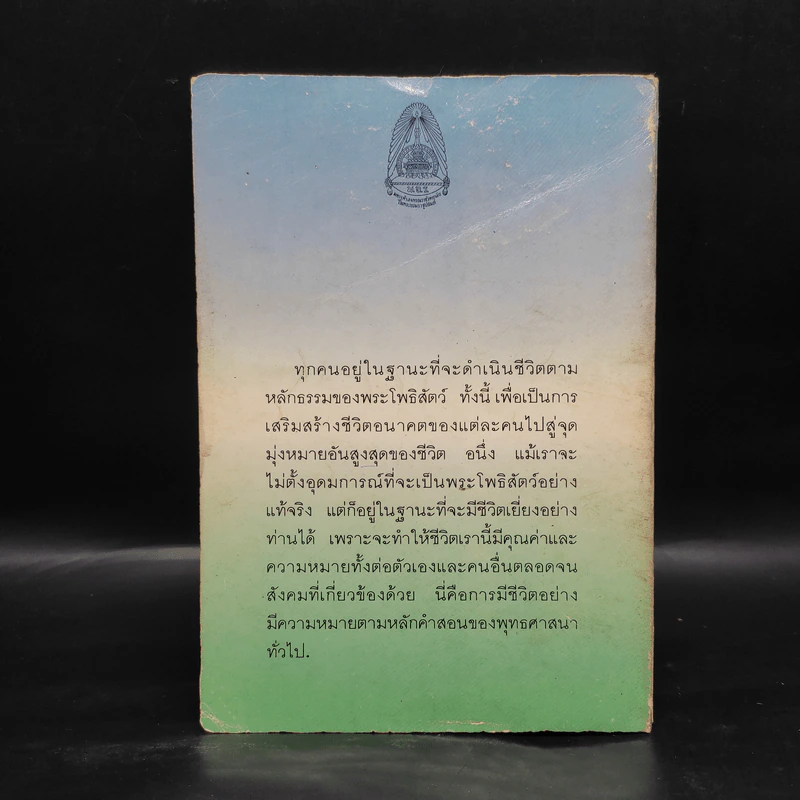 ทุกคนอยู่ในฐานะที่จะดำเนินชีวิตตาม
หลักธรรมของพระโพธิสัตว์ ทั้งนี้ เพื่อเป็นการ
เสริมสร้างชีวิตอนาคตของแต่ละคนไปสู่จุด
มุ่งหมายอันสูงสุดของชีวิต อนึ่ง แม้เราจะ
ไม่ตั้งอุดมการณ์ที่จะเป็นพระโพธิสัตว์อย่าง
แท้จริง แต่ก็อยู่ในฐานะที่จะมีชีวิตเยี่ยงอย่าง
ท่านได้ เพราะจะทำให้ชีวิตเรานี้มีคุณค่าและ
ความหมายทั้งต่อตัวเองและคนอื่นตลอดจน
สังคมที่เกี่ยวข้องด้วย นี่คือการมีชีวิตอย่าง
มีความหมายตามหลักคำสอนของพุทธศาสนา
ทั่วไป.